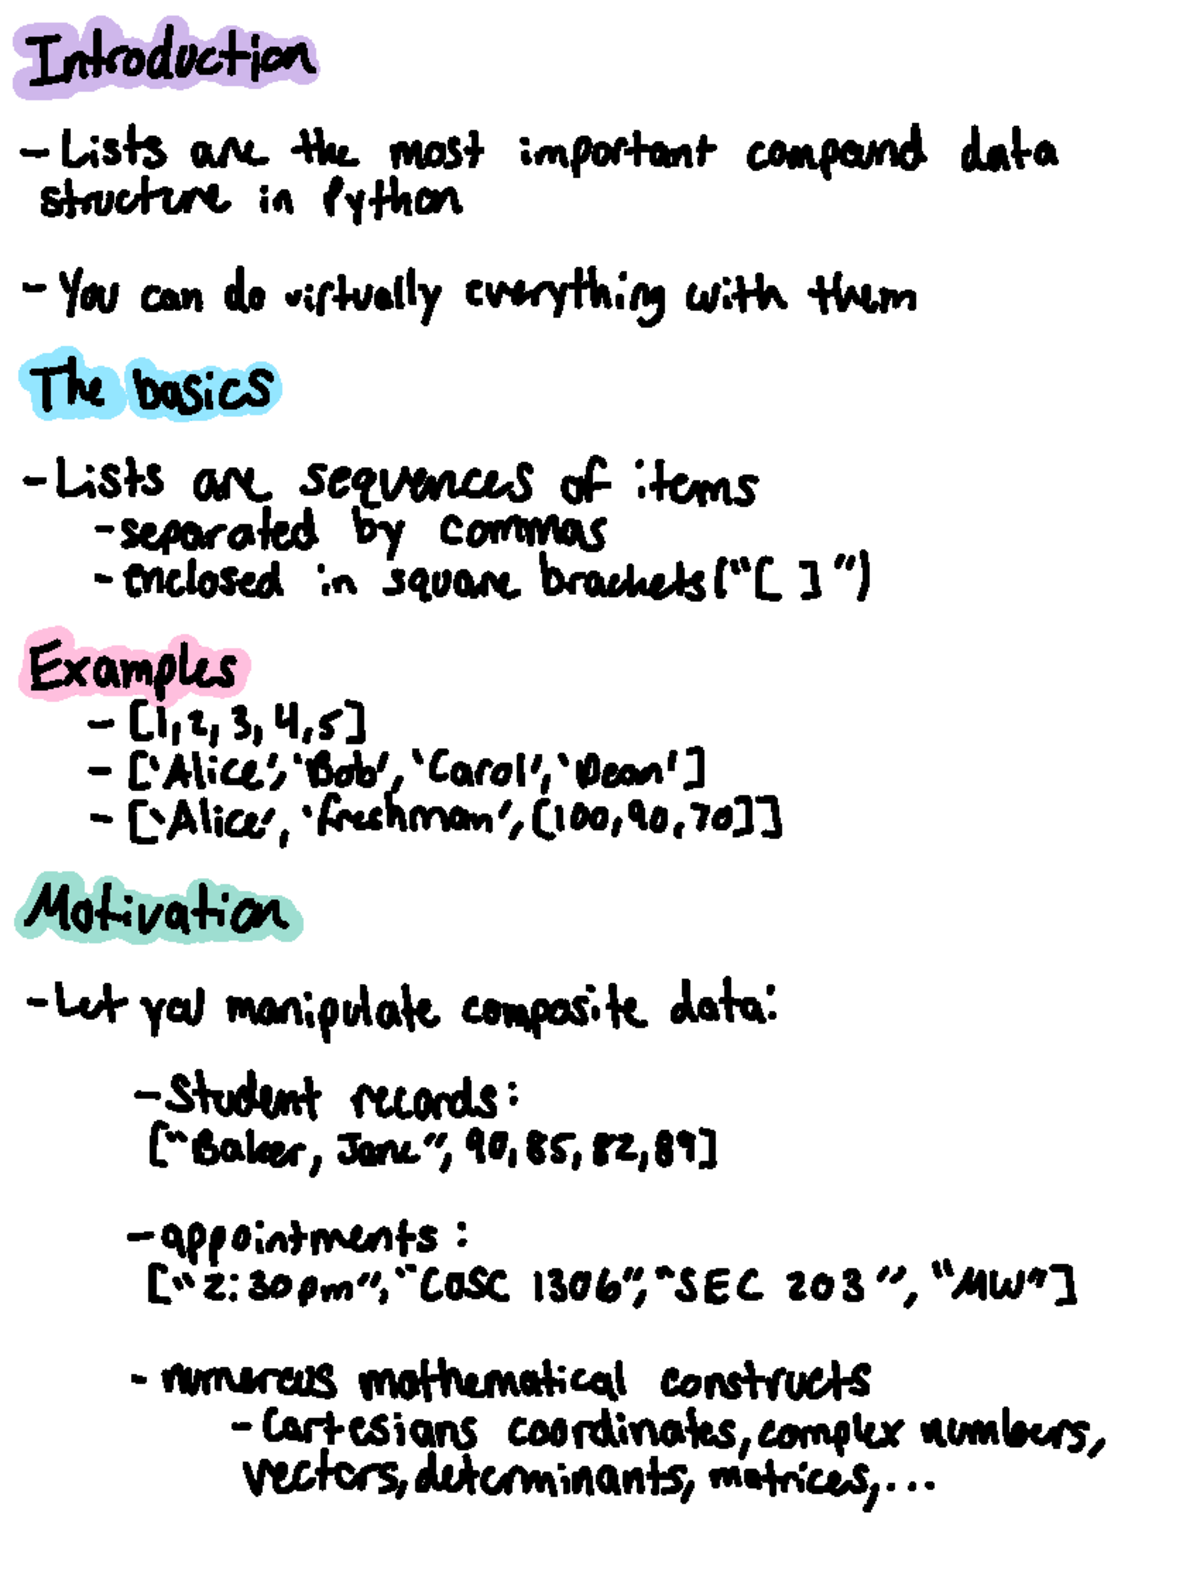 Introduction
- Lists are the most important compound data
structure in Python
- You can do virtually everything with them
The basics
- Lists are sequences of items
- separated by commas
- enclosed in square brackets ("[ ]")
Examples
- [1, 2, 3, 4, 5]
- ['Alice', 'Bob', 'Carol', 'Dean']
- ['Alice', 'freshman', [100, 90, 70]]
Motivation
- Let you manipulate composite data:
- Student records:
["Baker, Jane", 90, 85, 82, 89]
- appointments:
["2:30pm", "COSC 1306", "SEC 203", "MW"]
- numerous mathematical constructs
- Cartesians coordinates, complex numbers,
vectors, determinants, matrices, ...